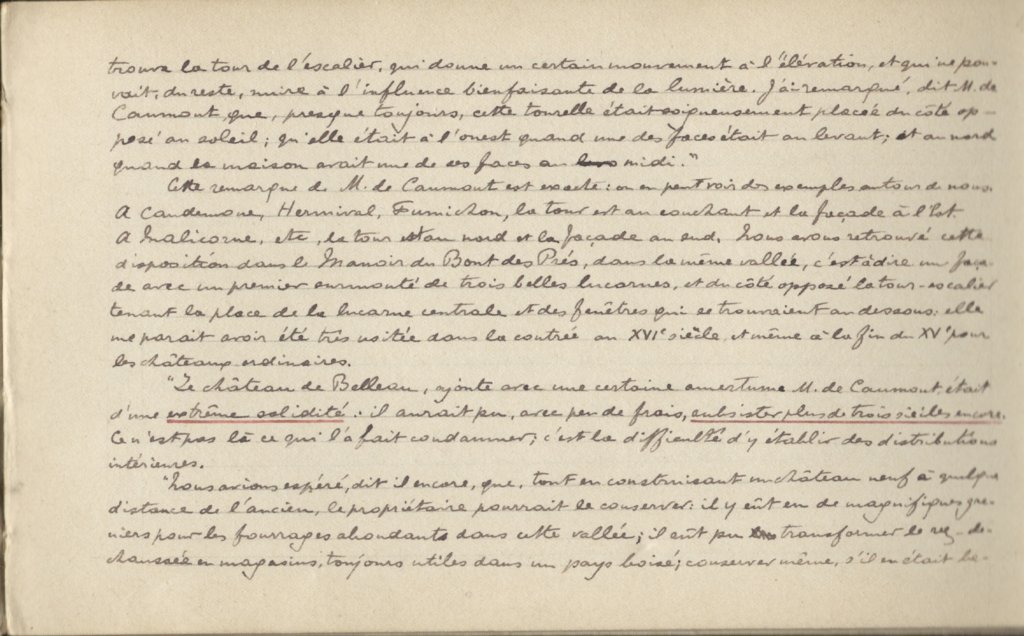 trouve la tour de l'escalier, qui donne un certain mouvement à l'élévation, et qui ne pou-
vait, du reste, nuire à l'influence bienfaisante de la lumière. J'ai remarqué, dit M. de
Caumont, que, presque toujours, cette tourelle était soigneusement placée du côté op-
posé au soleil ; qu'elle était à l'ouest quand une des faces était au levant ; et au nord
quand la maison avait une de ses faces au midi."
Cette remarque de M. de Caumont est exacte : on en peut voir des exemples autour de nous.
A Caudemone, Hermival, Fumichon, la tour est au couchant et la façade à l'Est
A Malicorne, etc, la tour est au nord et la façade au sud. Nous avons retrouvé cette
disposition dans le Manoir du Pont des Prés, dans la même vallée, c'est à dire une faça-
de avec un premier surmonté de trois belles lucarnes, et du côté opposé la tour-escalier
tenant la place de la lucarne centrale et des fenêtres qui se trouvaient au dessous : elle
me parait avoir été très usitée dans la contrée au XVIe siècle, et même à la fin du XVe pour
les châteaux ordinaires.
"Le château de Belleau, ajoute avec une certaine amertume M. de Caumont, était
d'une extrême solidité : il aurait pu, avec peu de frais, subsister plus de trois siècles encore.
Ce n'est pas là ce qui l'a fait condamner ; c'est la difficulté d'y établir des distributions
intérieures.
"Nous avions espéré, dit il encore, que, tout en construisant un château neuf à quelque
distance de l'ancien, le propriétaire pourrait le conserver : il y eût eu de magnifiques gre-
niers pour les fourrages abondants dans cette vallée ; il eût pu transformer le rez-de-
chaussée en magasins, toujours utiles dans un pays boisé ; conserver même, s'il en était be-